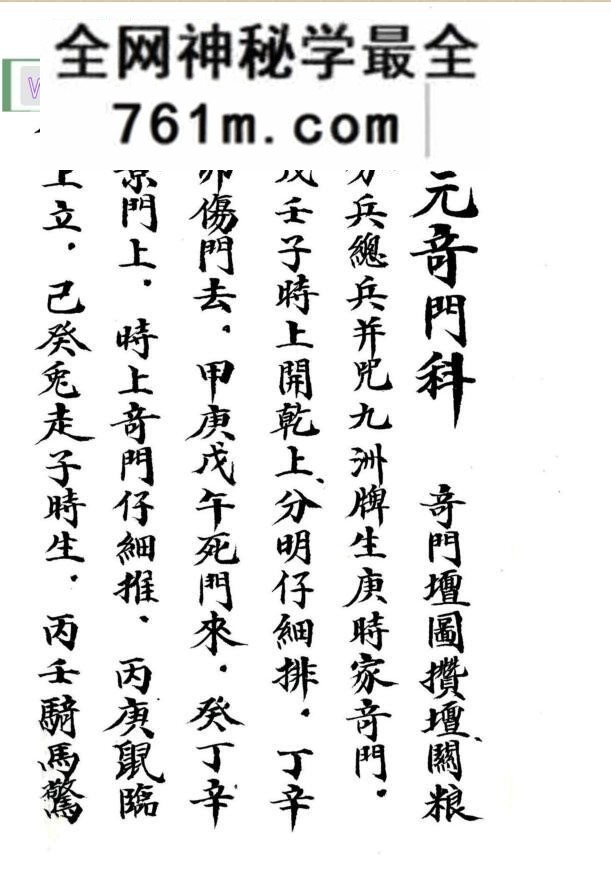 全网神秘学最全
761m.com
元奇門科　奇門壇圖攢壇、關粮
兵總兵并咒九洲牌生庚時家奇門。
戊壬子時上開乾上、分明仔細排。丁辛
卯傷門去。甲庚戊午死門來。癸丁辛
景門上。時上奇門仔細推、丙庚鼠臨
上立。己癸兎走子時生。丙壬騎馬驚